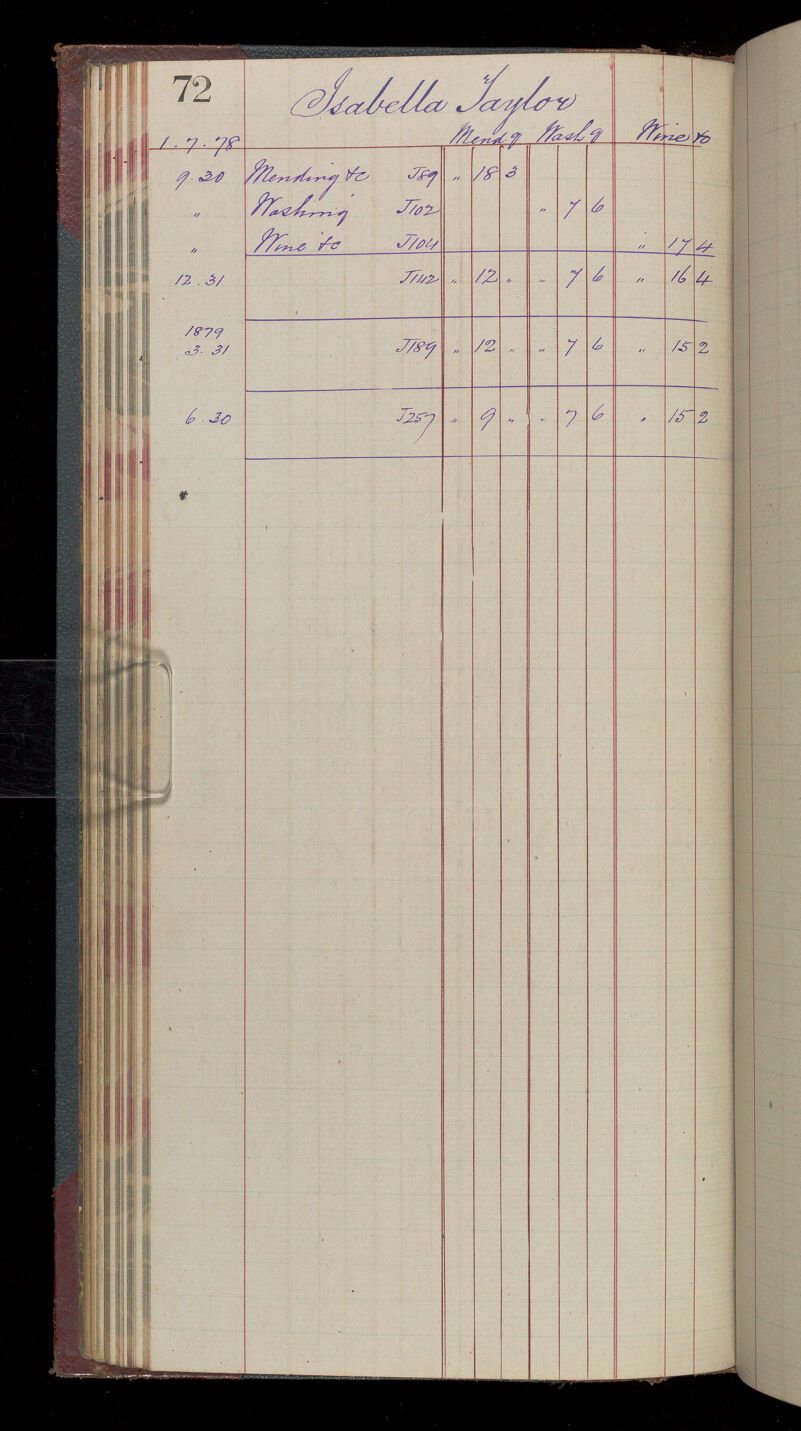 72
Isabella Taylor
1.7.78 Mendg Washg Wine &c
9.30 Mending &c J89 " 18 3
" Washing J102 " 7 6
" Wine &c J104 " 17 4
12.31 J142 " 12 " " 7 6 " 16 4
1879
3.31 J189 " 12 " " 7 6 " 15 2
6.30 J257 " 9 " " 7 6 " 15 2
*